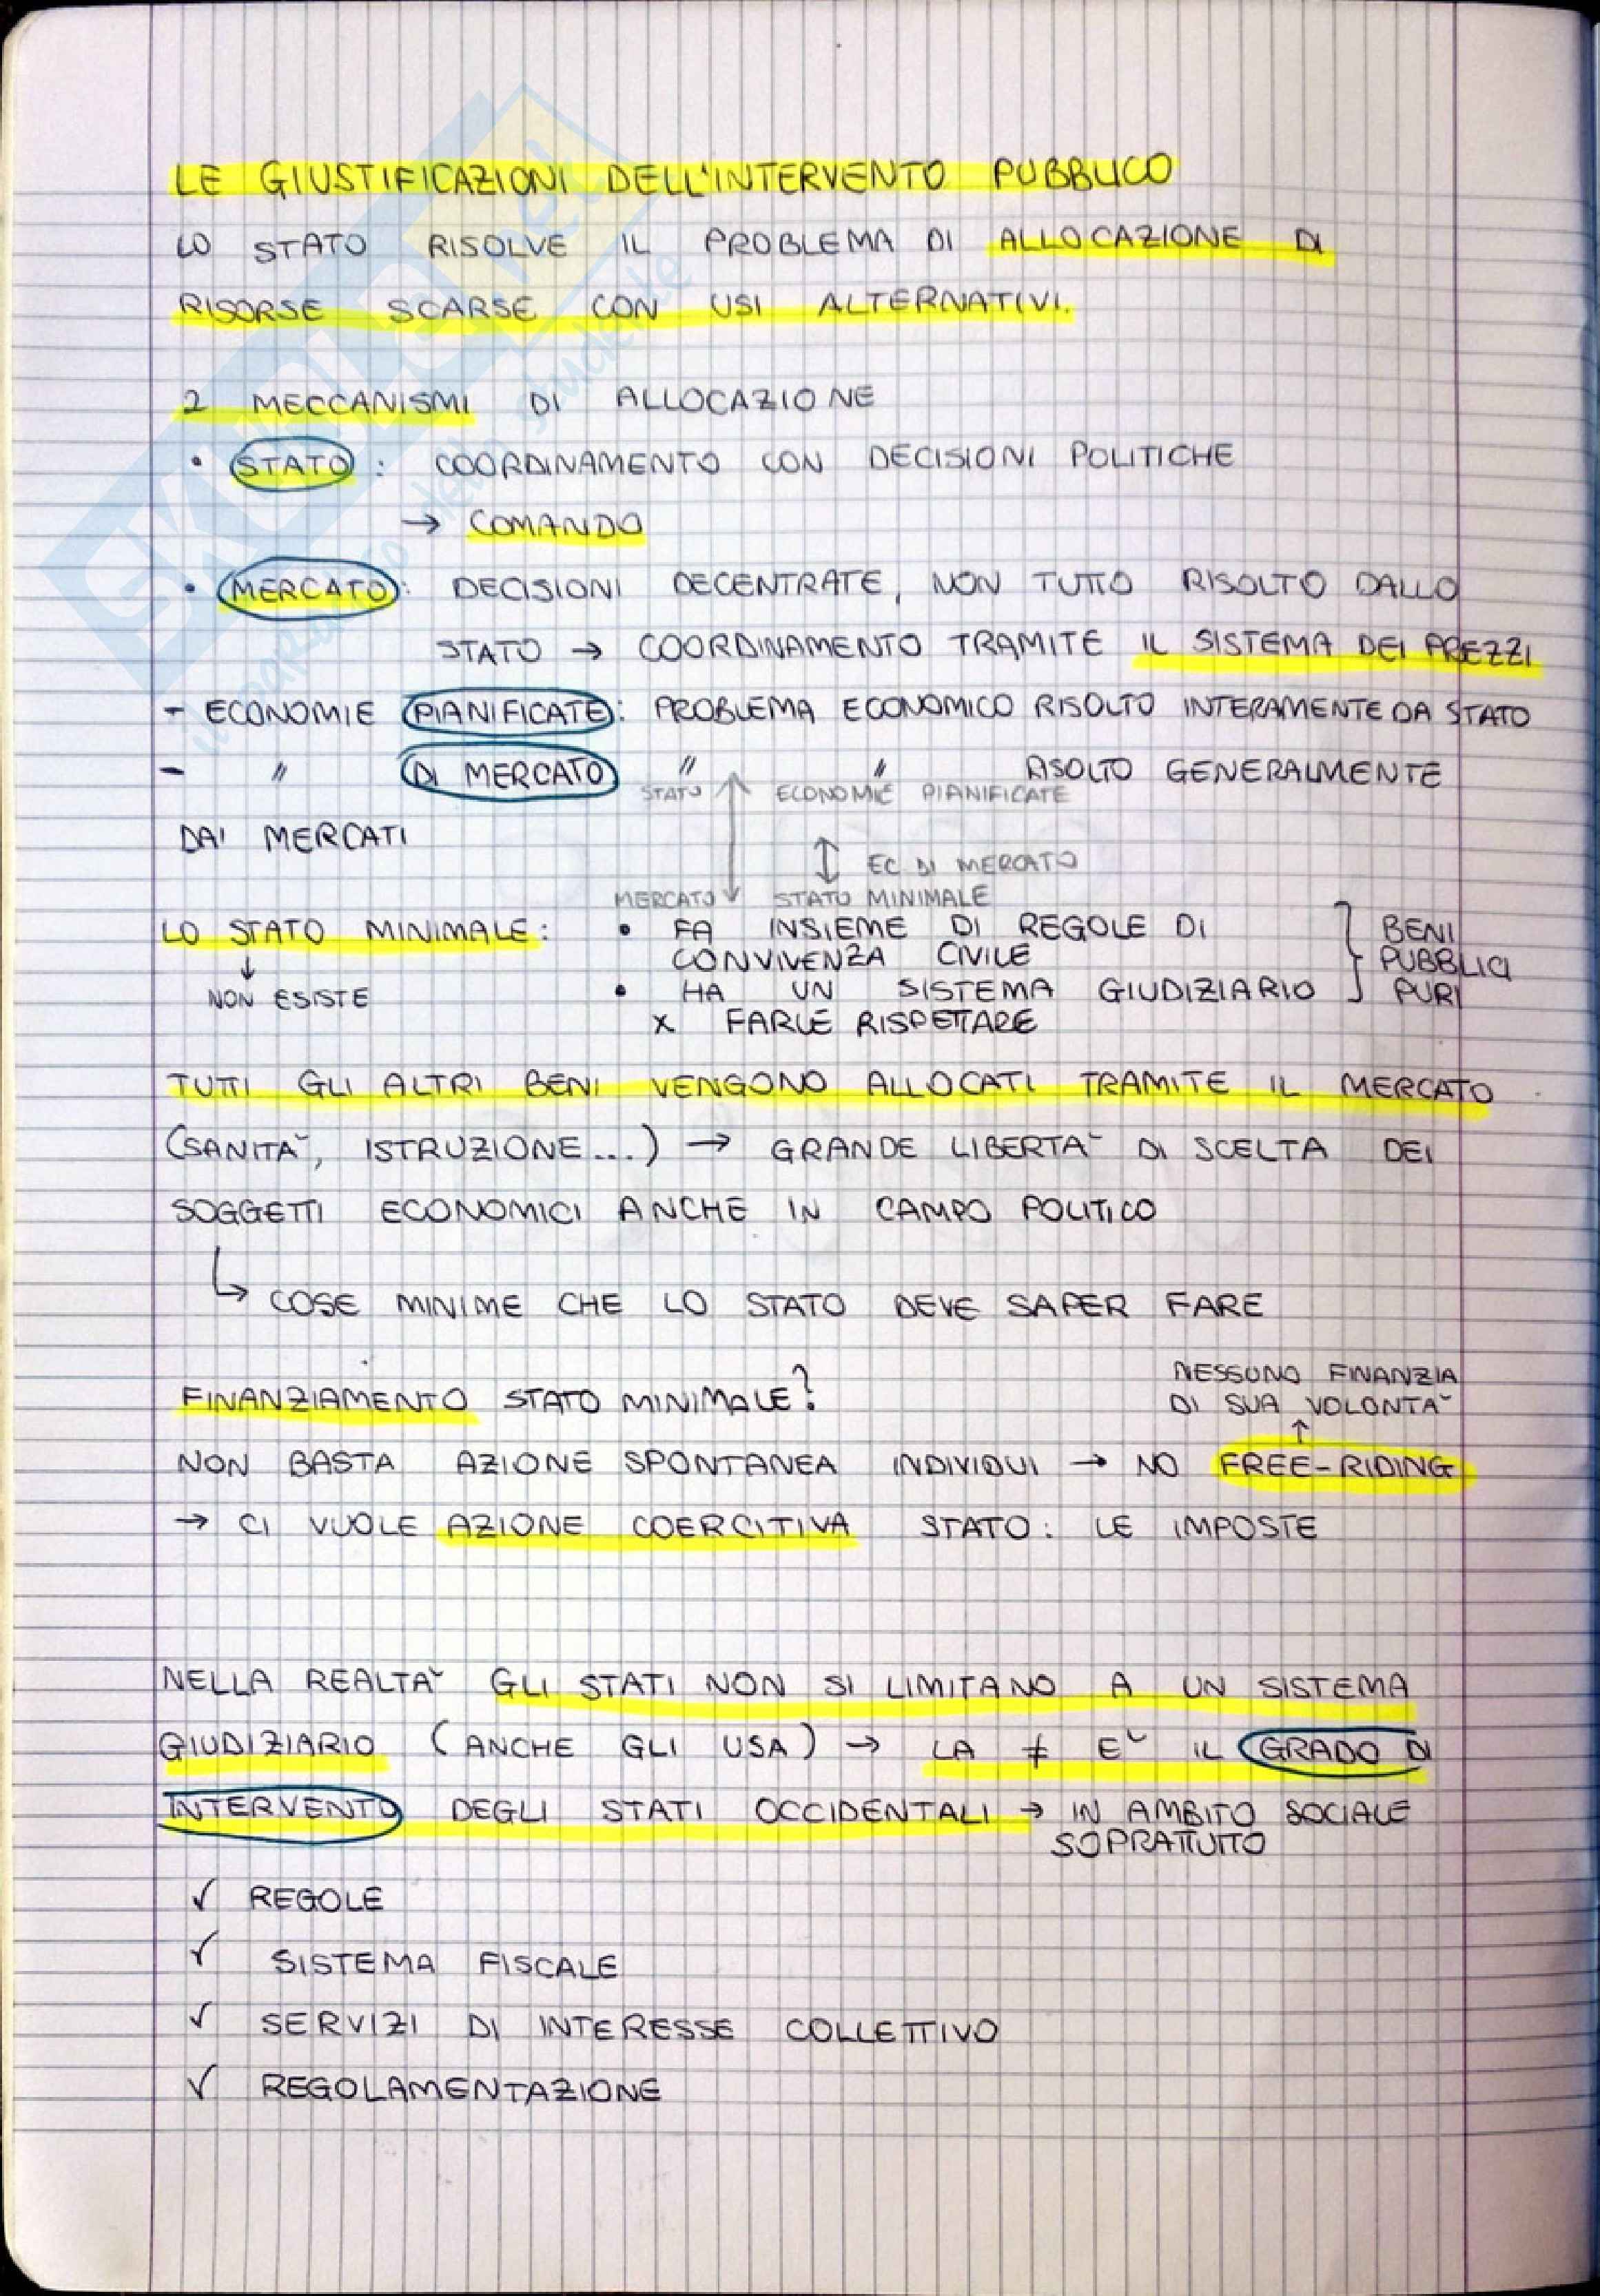 LE GIUSTIFICAZIONI DELL'INTERVENTO PUBBLICO
LO STATO RISOLVE IL PROBLEMA DI ALLOCAZIONE DI
RISORSE SCARSE CON USI ALTERNATIVI.
2 MECCANISMI DI ALLOCAZIONE
• STATO : COORDINAMENTO CON DECISIONI POLITICHE
→ COMANDO
• MERCATO : DECISIONI DECENTRATE, NON TUTTO RISOLTO DALLO
STATO → COORDINAMENTO TRAMITE IL SISTEMA DEI PREZZI
- ECONOMIE PIANIFICATE : PROBLEMA ECONOMICO RISOLTO INTERAMENTE DA STATO
- " DI MERCATO " " RISOLTO GENERALMENTE
STATO ↑ ECONOMIE PIANIFICATE
DAI MERCATI
↕ EC DI MERCATO
MERCATO ↓ STATO MINIMALE
LO STATO MINIMALE : • FA INSIEME DI REGOLE DI
CONVIVENZA CIVILE
↓
NON ESISTE
• HA UN SISTEMA GIUDIZIARIO
X FARLE RISPETTARE
} BENI
PUBBLICI
PURI
TUTTI GLI ALTRI BENI VENGONO ALLOCATI TRAMITE IL MERCATO
(SANITA', ISTRUZIONE...) → GRANDE LIBERTA' DI SCELTA DEI
SOGGETTI ECONOMICI ANCHE IN CAMPO POLITICO
↳ COSE MINIME CHE LO STATO DEVE SAPER FARE
FINANZIAMENTO STATO MINIMALE?
NESSUNO FINANZIA
DI SUA VOLONTA'
↑
NON BASTA AZIONE SPONTANEA INDIVIDUI → NO FREE-RIDING
→ CI VUOLE AZIONE COERCITIVA STATO : LE IMPOSTE
NELLA REALTA' GLI STATI NON SI LIMITANO A UN SISTEMA
GIUDIZIARIO (ANCHE GLI USA) → LA ≠ E' IL GRADO DI
INTERVENTO DEGLI STATI OCCIDENTALI → IN AMBITO SOCIALE
SOPRATTUTTO
✓ REGOLE
✓ SISTEMA FISCALE
✓ SERVIZI DI INTERESSE COLLETTIVO
✓ REGOLAMENTAZIONE